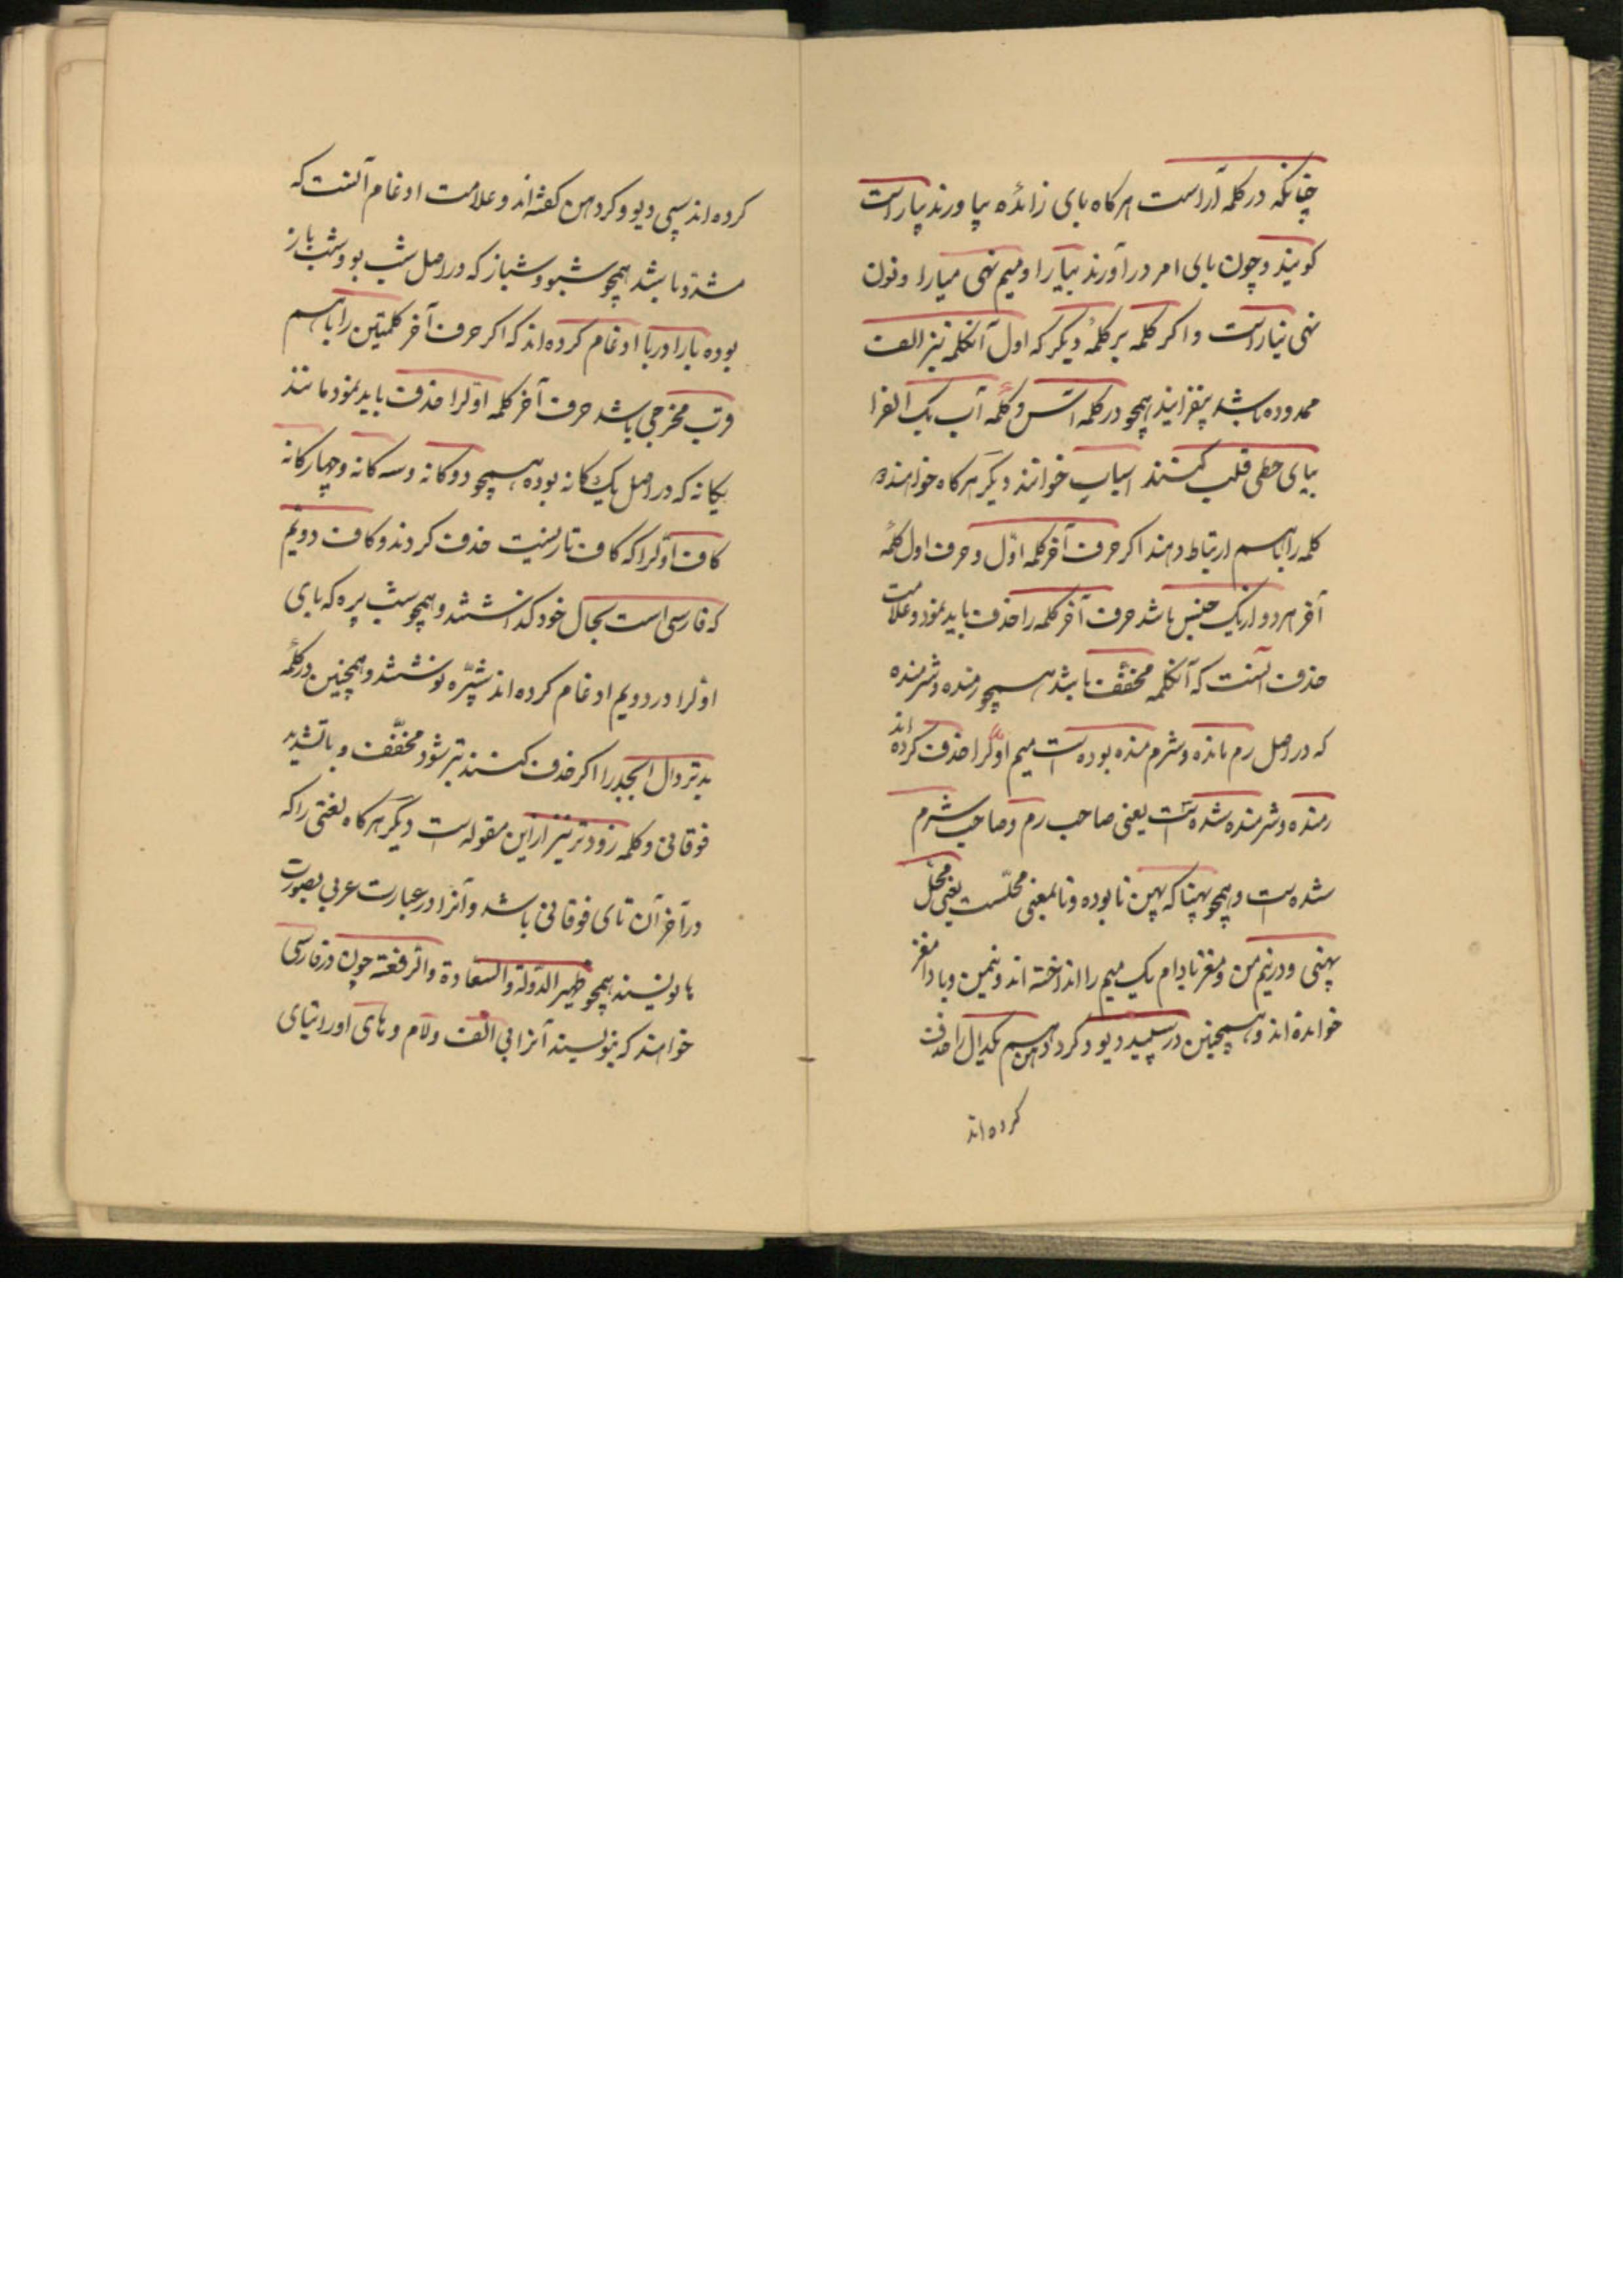 چنانکه در کلمه آراست هرکاه بای زائده بیاورند بیاراست
کویند و چون بای امر در آورند بیارا و میم نهی میارا و نون
نهی نیاراست و اکر کلمه بر کلمهٔ دیکر که اول آنکلمه نیز الف
ممدوده باشد بیفزایند همچو در کلمه آس و کلمهٔ آب یک الف را
بیای حطی قلب کنند آسیاب خوانند دیکر هرکاه خواهند دو
کلمه را باهم ارتباط دهند اکر حرف آخر کلمه اوّل و حرف اول کلمهٔ
آخر هر دو از یک جنس باشد حرف آخر کلمه را حذف باید نمود و علامت
حذف آنست که آنکلمه مخفّف باشد همچو رمنده و شرمنده
که در اصل رم مانده و شرم منده بوده است میم اوّلرا حذف کرده اند
رمنده و شرمنده شده است یعنی صاحب رم و صاحب شرم
شده است و همچو پهنا که پهن نا بوده و نا بمعنی محلّست یعنی محل
پهنی و در نیم من و مغز بادام یک میم را انداخته اند و نیمن و بادامغز
خوانده اند و همچنین در سپید دیو و کرد دهن هم یکدال را حذف
کرده اند
کرده اند سپی دیو و کردهن کفته اند و علامت ادغام آنست که
مشدّد باشد همچو شبّو و شبّاز که در اصل شب بو و شب باز
بوده با را در با ادغام کرده اند که اکر حرف آخر کلمتین را باهم
قرب مخرجی باشد حرف آخر کلمه اوّلرا حذف باید نمود مانند
یکانه که در اصل یک کانه بوده همچو دوکانه و سه کانه و چهارکانه
کاف اوّلرا که کاف تازیست حذف کردند و کاف دویم
که فارسی است بحال خود کذاشتند و همچو شب پره که بای
اوّلرا در دویم ادغام کرده اند شپّره نوشتند و همچنین در کلمهٔ
بدتر دال ابجد را اکر حذف کنند بتر شود مخفّف و با تشدید
فوقانی و کلمه زودتر نیز از این مقوله است دیکر هرکاه لغتی را که
در آخر آن تای فوقانی باشد و آنرا در عبارت عربی بصورت
ها نویسند همچو ظهیر الدّولة و السعادة و الرفعة چون در فارسی
خواهند که بنویسند آنرا بی الف و لام و های او را بتای